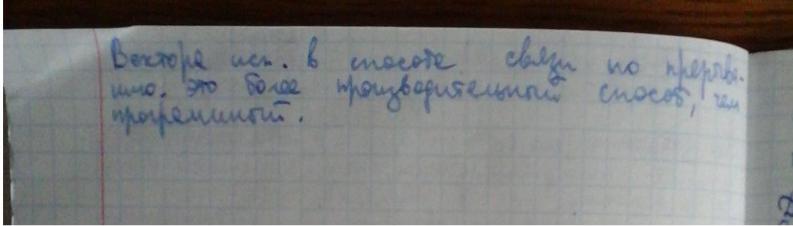 Вектора исп. в способе связи по прерыва-
нию. это более производительный способ, чем
програмный.